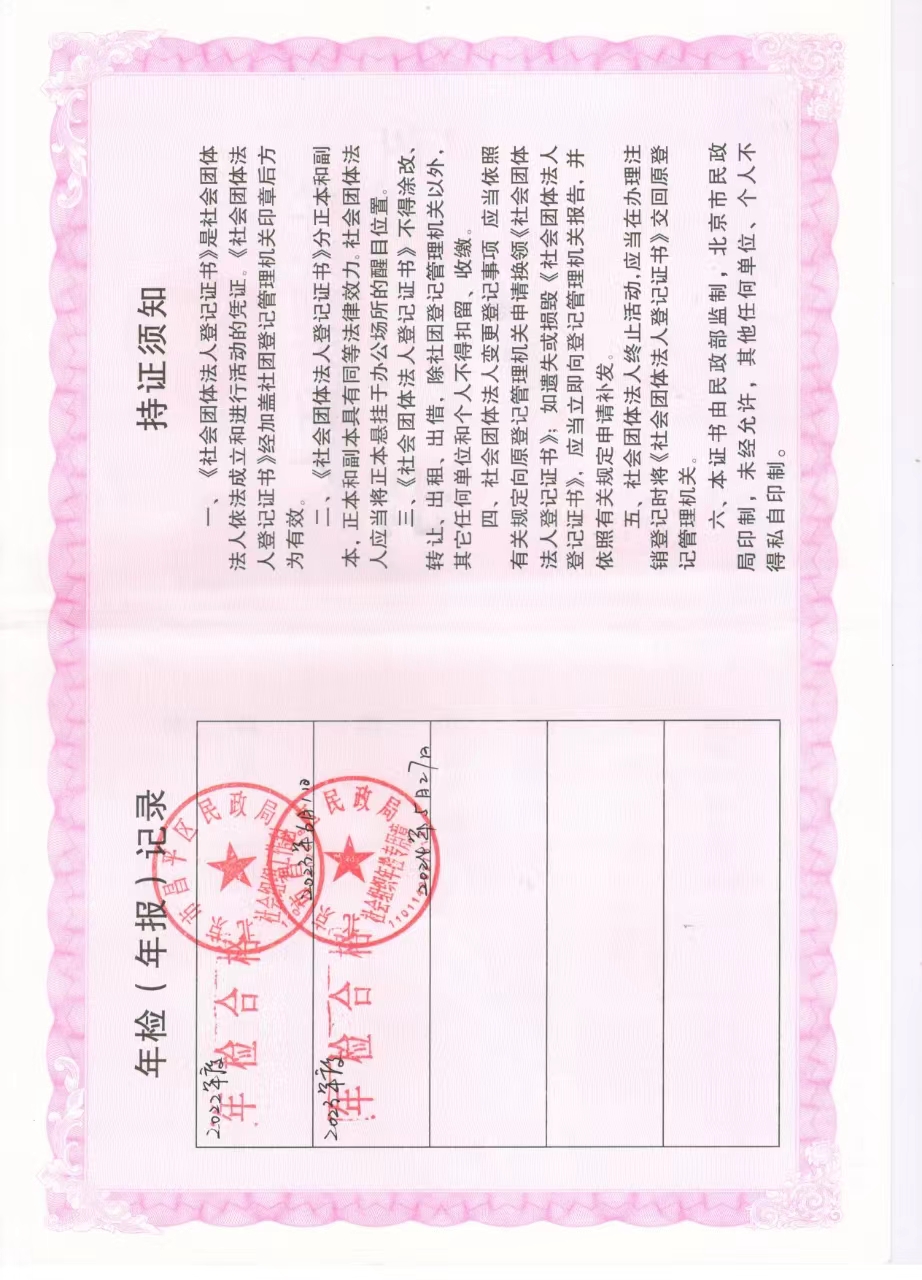 年检（年报）记录
2022年度
年检合格
北京市昌平区民政局
2023年6月1日
2023年度
年检合格
民政局
社会组织年检专用章
2024年5月27日
持证须知
一、《社会团体法人登记证书》是社会团体
法人依法成立和进行活动的凭证。《社会团体法
人登记证书》经加盖社团登记管理机关印章后方
为有效。
二、《社会团体法人登记证书》分正本和副
本，正本和副本具有同等法律效力。社会团体法
人应当将正本悬挂于办公场所的醒目位置。
三、《社会团体法人登记证书》不得涂改、
转让、出租、出借，除社团登记管理机关以外，
其它任何单位和个人不得扣留、收缴。
四、社会团体法人变更登记事项 应当依照
有关规定向原登记管理机关申请换领《社会团体
法人登记证书》；如遗失或损毁《社会团体法人
登记证书》，应当立即向登记管理机关报告，并
依照有关规定申请补发。
五、社会团体法人终止活动,应当在办理注
销登记时将《社会团体法人登记证书》交回原登
记管理机关。
六、本证书由民政部监制，北京市民政
局印制，未经允许，其他任何单位、个人不
得私自印制。